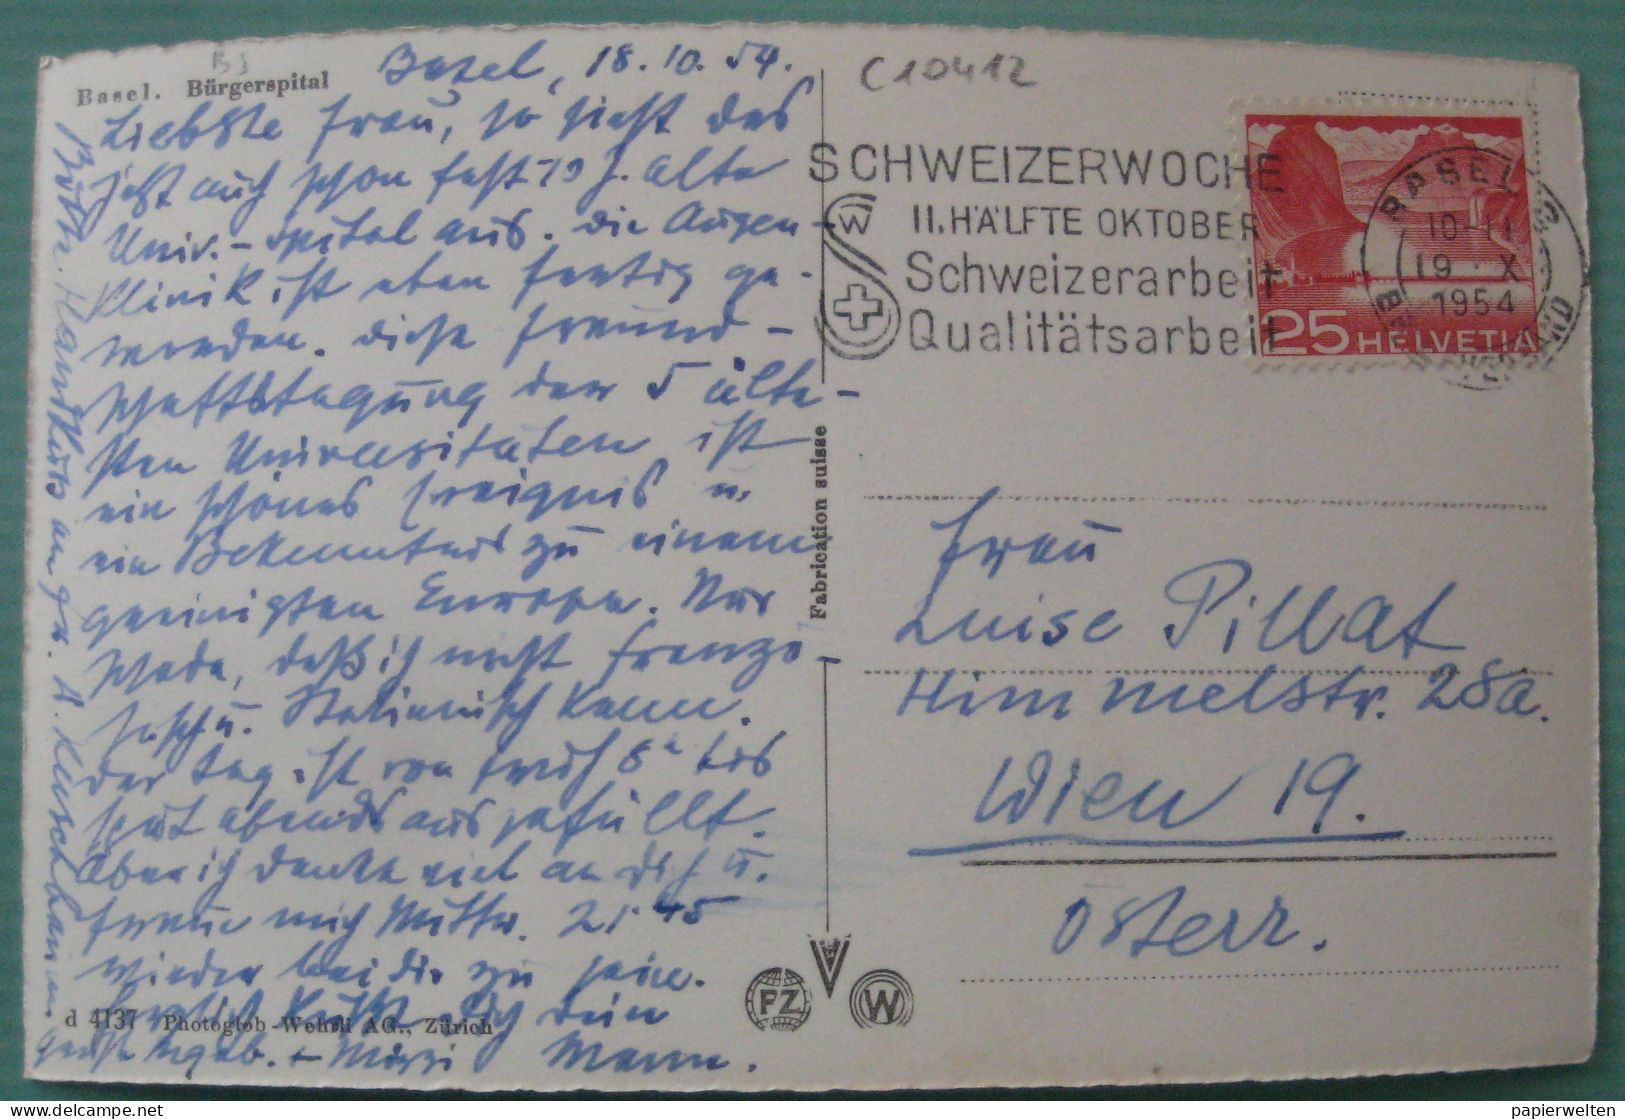 Basel. Bürgerspital
Basel, 18.10.54.
Liebste Frau, so sieht das
jetzt auch schon fast 10 J. alte
Univ.-Spital aus. Die Augen-
klinik ist eben fertig ge-
worden. Diese Freund-
schaftstagung der 5 älte-
sten Universitäten ist
ein schönes Ereignis u.
ein Bekenntnis zu einem
geeinigten Europa. Nur
schade, daß ich nicht Franzö-
sisch u. Italienisch kann.
Der Tag ist von früh 8h bis
spät abends ausgefüllt.
Aber ich denke viel an Dich u.
freue mich Mittw. 21 45
wieder bei Dir zu sein.
Herzlich küsst Dich Dein
Mann.
d 4137 Photoglob-Wehrli AG., Zürich
Fabrication suisse
PZ
W
C10412
SCHWEIZERWOCHE
II. HÄLFTE OKTOBER
Schweizerarbeit
Qualitätsarbeit
W
BASEL 2
10-11
19 X
1954
BRIEFVERSAND
25 HELVETIA
Frau
Luise Pillat
Himmelstr. 28a.
Wien 19.
Österr.
papierwelten